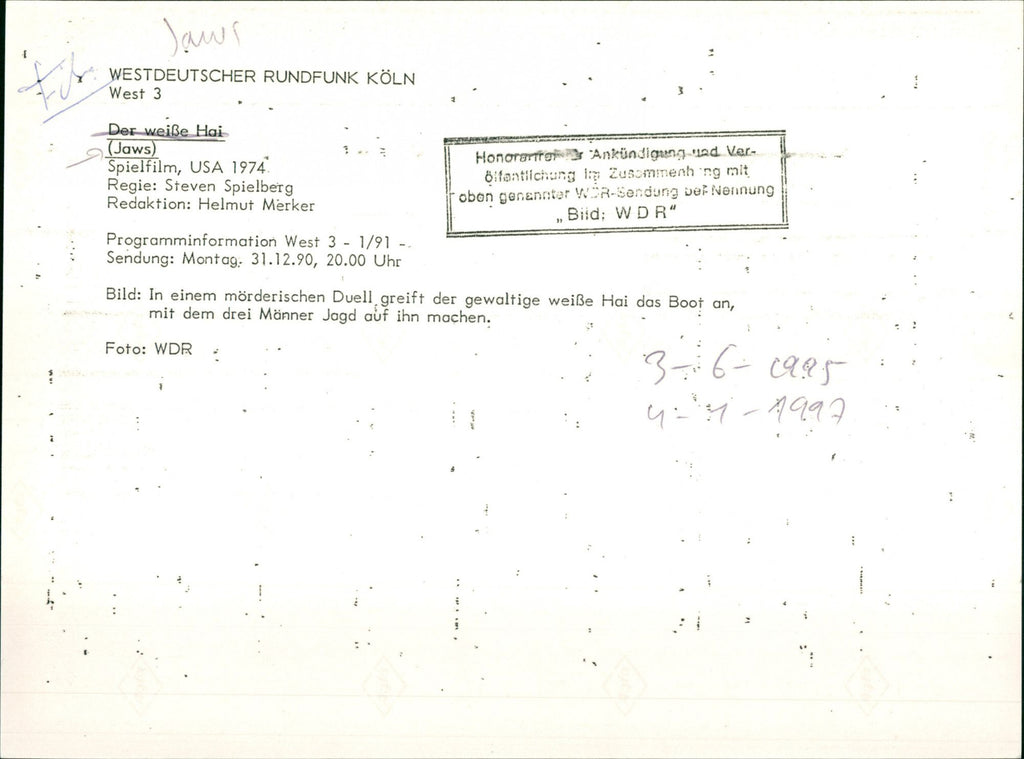 Jaws
WESTDEUTSCHER RUNDFUNK KÖLN
West 3
Der weiße Hai
(Jaws)
Spielfilm, USA 1974
Regie: Steven Spielberg
Redaktion: Helmut Merker
Honorarfrei für Ankündigung und Ver-
öffentlichung im Zusammenhang mit
oben genannter WDR-Sendung bei Nennung
„Bild: W D R“
Programminformation West 3 - 1/91 -
Sendung: Montag, 31.12.90, 20.00 Uhr
Bild: In einem mörderischen Duell greift der gewaltige weiße Hai das Boot an,
mit dem drei Männer Jagd auf ihn machen.
Foto: WDR
3-6-1995
4-1-1997